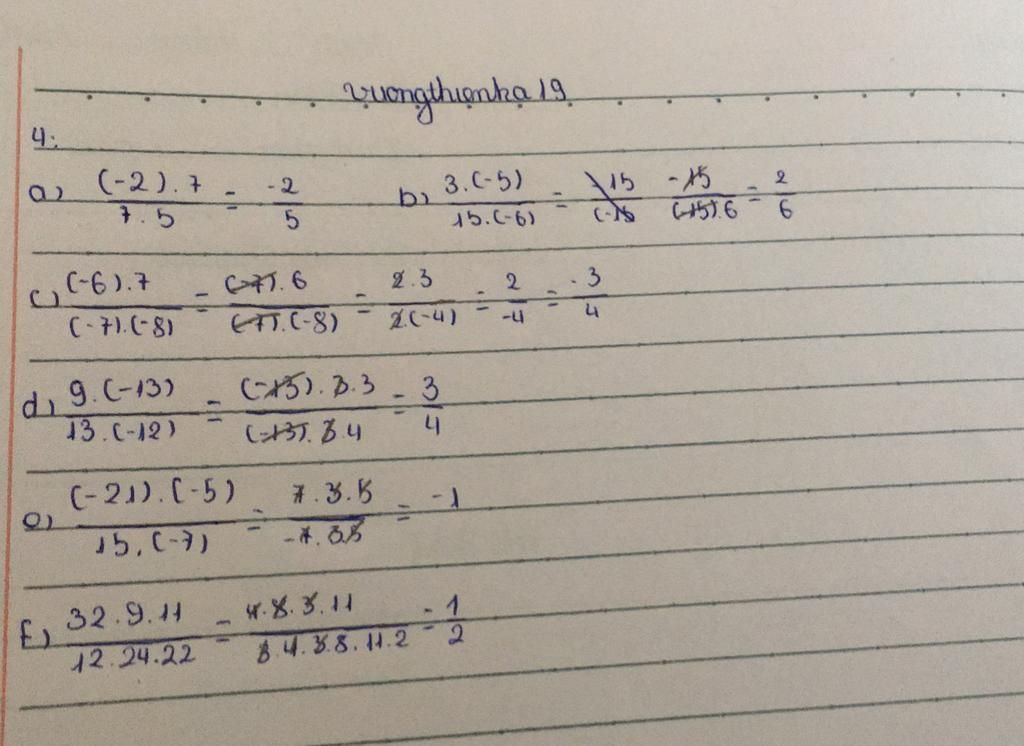 vuongthienha19
4:
a) (-2).7/7.5 = -2/5 b) 3.(-5)/15.(-6) = -15/(-15).6 = 2/6
c) (-6).7/(-7).(-8) = (-7).6/(-7).(-8) = 2.3/2.(-4) = 2/-4 = -3/4
d) 9.(-13)/13.(-12) = (-13).3.3/(-13).3.4 = 3/4
e) (-21).(-5)/15.(-7) = 7.3.5/-7.3.5 = -1
f) 32.9.11/12.24.22 = 4.8.3.11/3.4.3.8.11.2 = 1/2